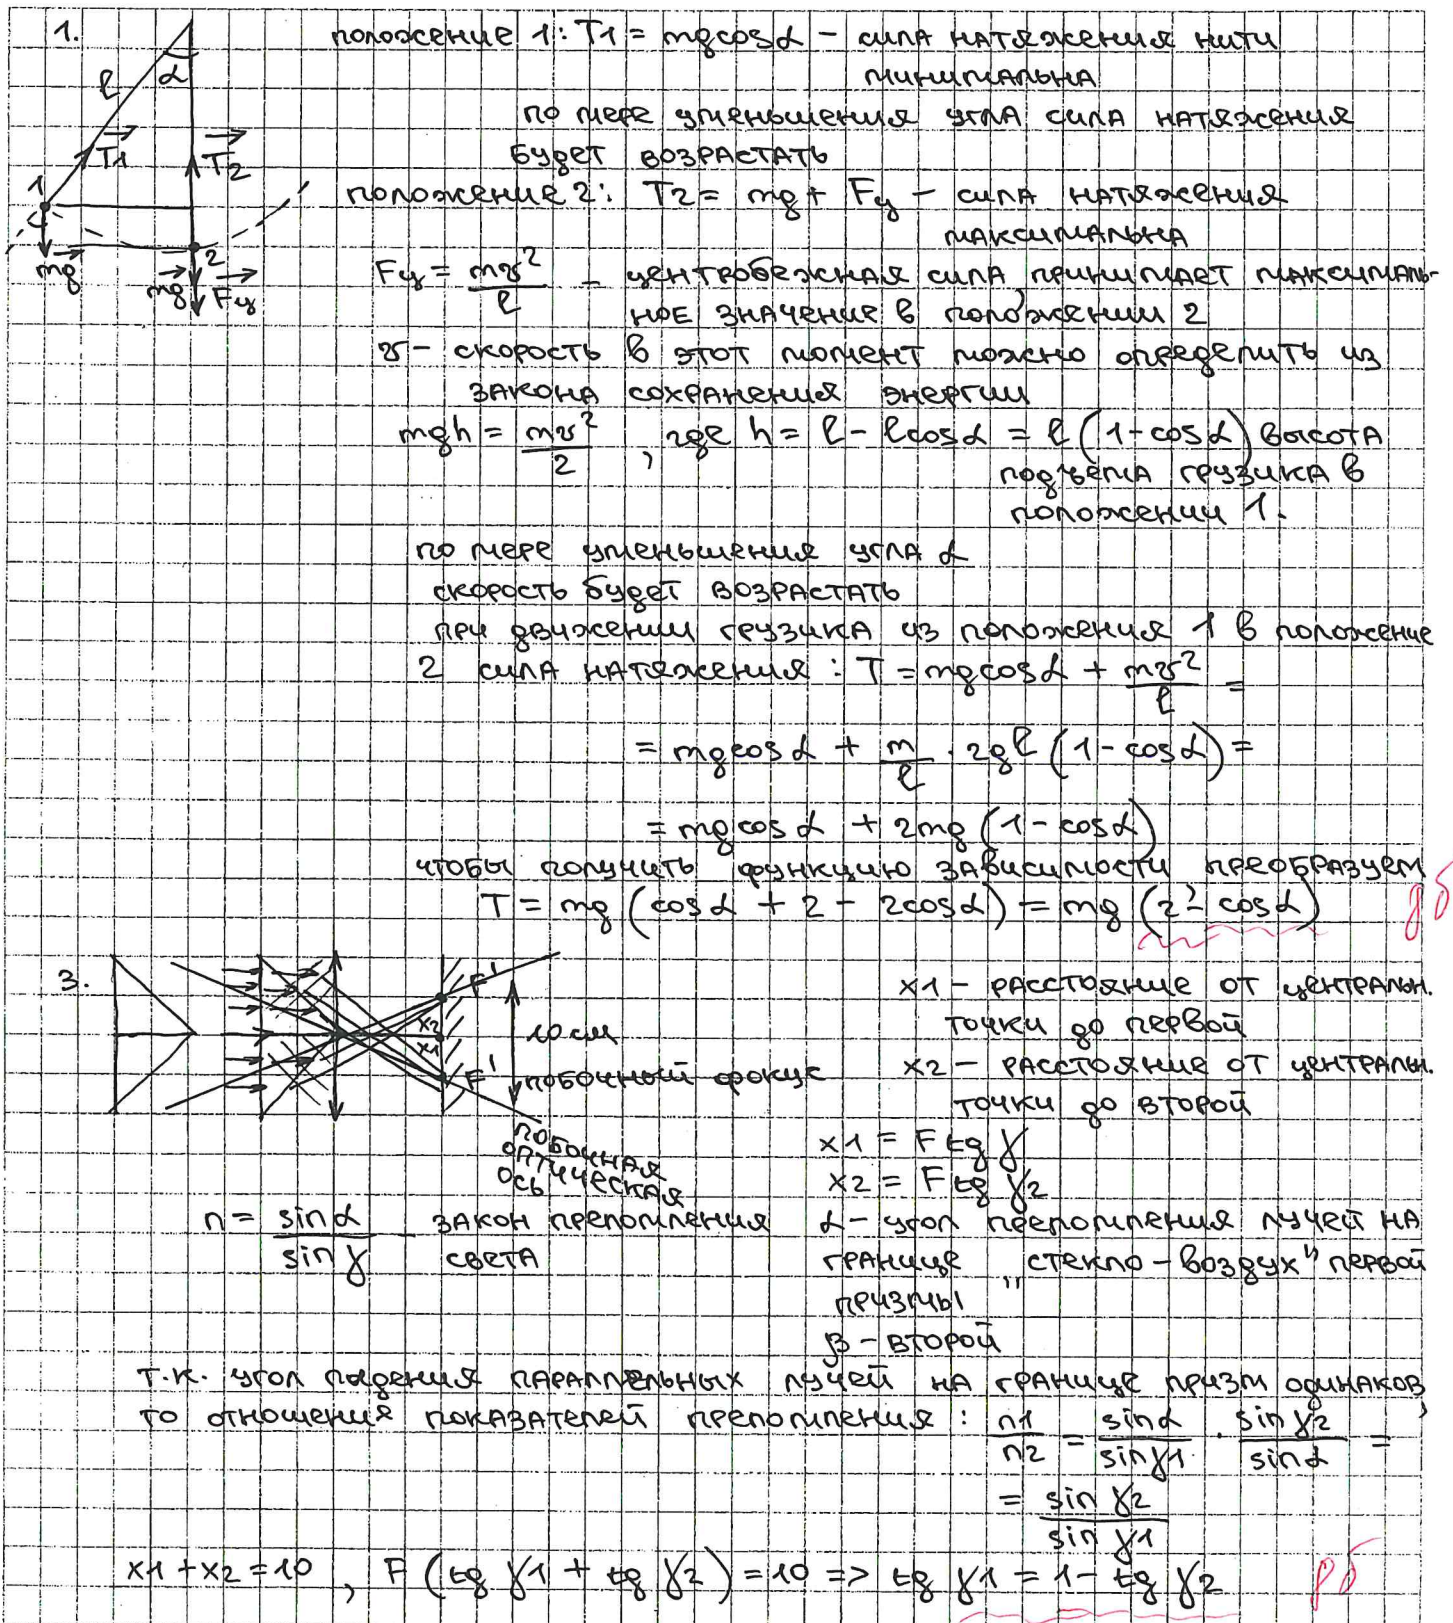 1.
α
l
T1
T2
1
2
mg
mg
Fц
положение 1: T1 = mgcosα – сила натяжения нити
минимальна
по мере уменьшения угла сила натяжения
будет возрастать
положение 2: T2 = mg + Fц – сила натяжения
максимальна
Fц = mv²/l – центробежная сила, принимает максималь-
ное значение в положении 2
v – скорость в этот момент можно определить из
закона сохранения энергии
mgh = mv²/2, где h = l – lcosα = l(1–cosα) высота
подъёма грузика в
положении 1.
по мере уменьшения угла α
скорость будет возрастать
при движении грузика из положения 1 в положение
2 сила натяжения: T = mgcosα + mv²/l =
= mgcosα + m/l · 2gl(1–cosα) =
= mgcosα + 2mg(1–cosα)
чтобы получить функцию зависимости преобразуем
T = mg(cosα + 2 – 2cosα) = mg(2 – cosα)
3.
F'
x2
x1
F'
10 см
побочный фокус
побочная
оптическая
ось
x1 – расстояние от центральн.
точки до первой
x2 – расстояние от центральн.
точки до второй
x1 = F tg γ
x2 = F tg γ2
n = sinα/sinγ – закон преломления
света
α – угол преломления лучей на
границе „стекло – воздух" первой
призмы
β – второй
т.к. угол падения параллельных лучей на границе призм одинаков,
то отношения показателей преломления: n1/n2 = sinα/sinγ1 · sinγ2/sinα =
= sinγ2/sinγ1
x1 + x2 = 10, F(tg γ1 + tg γ2) = 10 => tg γ1 = 1 – tg γ2